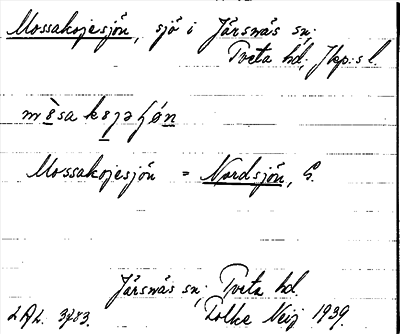 Mossakojesjön, sjö i Järsnäs sn;
Tveta hd, Jkp:s l.
Mossakojesjön = Nordsjön, G.
Järsnäs sn; Tveta hd.
LAL. 3783. Folke Neij 1939.